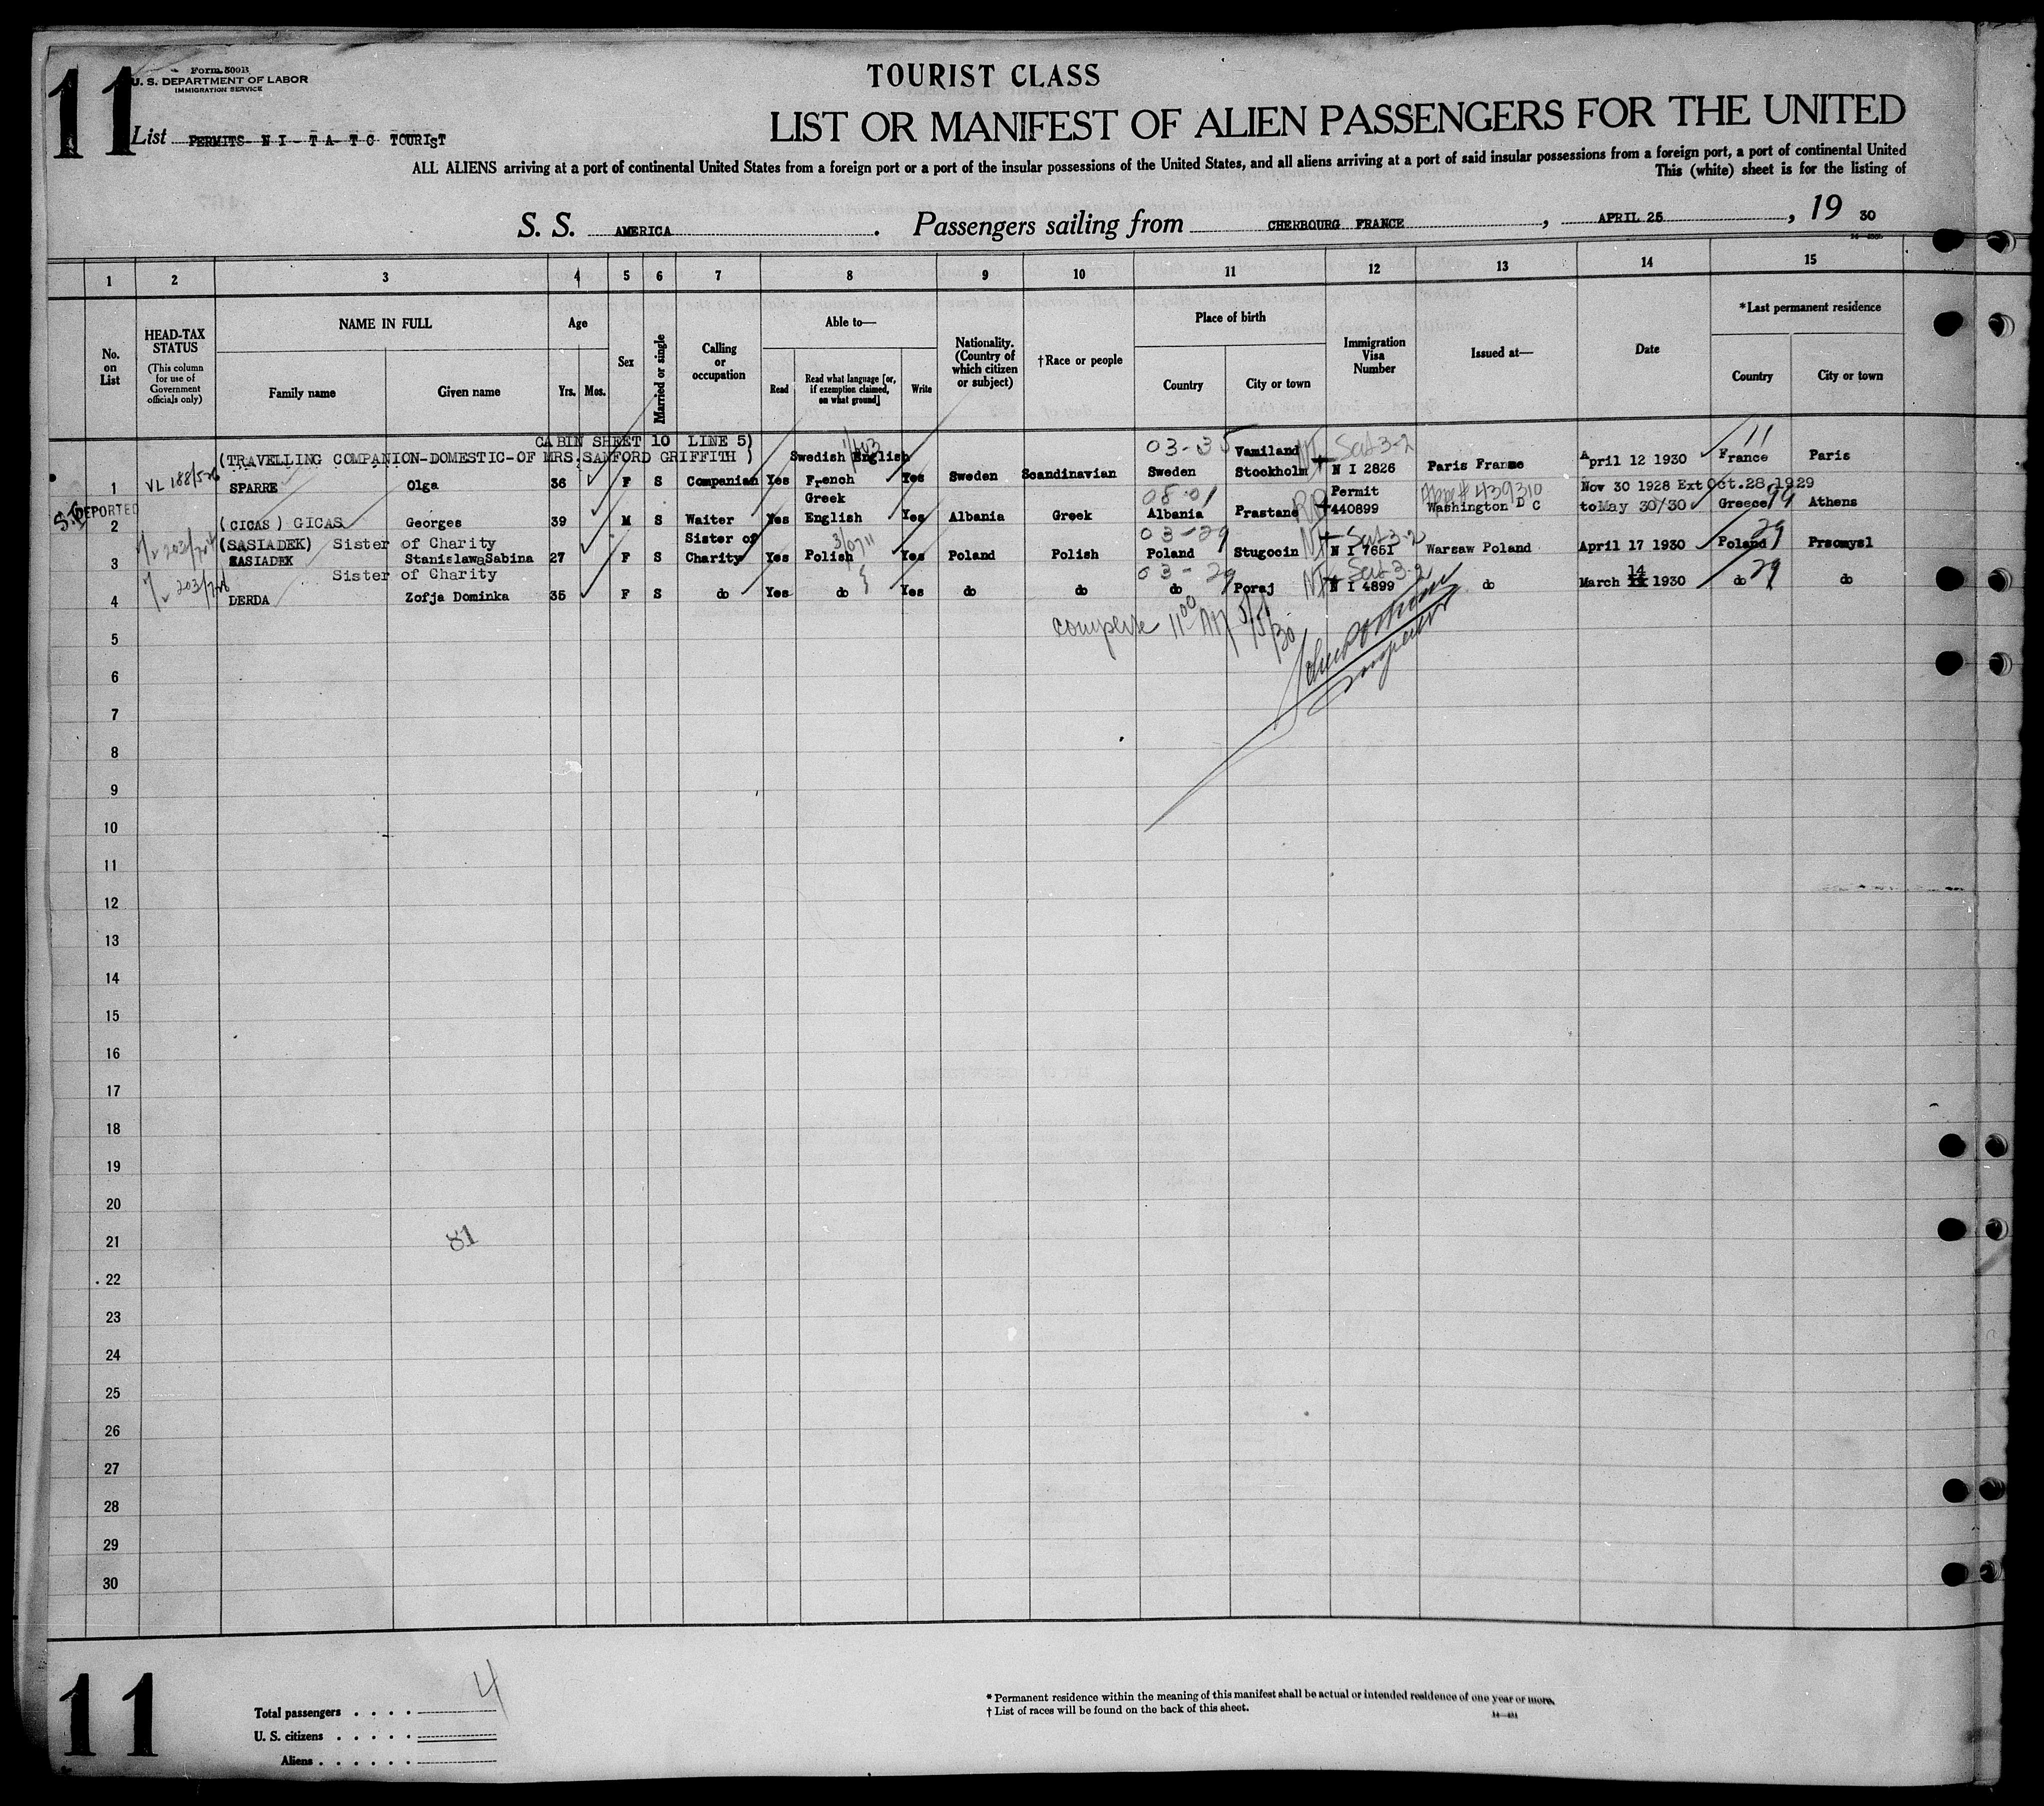 11
Form 500B
U. S. DEPARTMENT OF LABOR
IMMIGRATION SERVICE
TOURIST CLASS
LIST OR MANIFEST OF ALIEN PASSENGERS FOR THE UNITED
List PERMITS- N I - T A- T C TOURIST
ALL ALIENS arriving at a port of continental United States from a foreign port or a port of the insular possessions of the United States, and all aliens arriving at a port of said insular possessions from a foreign port, a port of continental United
This (white) sheet is for the listing of
S. S. AMERICA . Passengers sailing from CHERBOURG FRANCE , APRIL 25 , 19 30
1 2 3 4 5 6 7 8 9 10 11 12 13 14 15
No. on List
HEAD-TAX STATUS
(This column for use of Government officials only)
NAME IN FULL
Family name Given name
Age
Yrs. Mos.
Sex
Married or single
Calling or occupation
Able to—
Read Read what language [or, if exemption claimed, on what ground] Write
Nationality. (Country of which citizen or subject)
†Race or people
Place of birth
Country City or town
Immigration Visa Number
Issued at—
Date
*Last permanent residence
Country City or town
CABIN SHEET 10 LINE 5)
(TRAVELLING COMPANION-DOMESTIC-OF MRS.SANFORD GRIFFITH ) Swedish English 03-35 Vamiland NI Sect 3-2 11
1 VL 188/526 SPARRE Olga 36 F S Companian Yes French Yes Sweden Scandinavian Sweden Stockholm N I 2826 Paris Franme April 12 1930 France Paris
DEPORTED Greek 08-01 Permit 439310 Nov 30 1928 Ext Oct.28,1929
2 (CICAS) GICAS Georges 39 M S Waiter Yes English Yes Albania Greek Albania Prastane 440899 Washington D C to May 30/30 Greece 99 Athens
(SASIADEK) Sister of Charity Sister of 03-29 NI Sect 3-2 29
3 SASIADEK Stanislawa Sabina 27 F S Charity Yes Polish Yes Poland Polish Poland Stugocin N I 7651 Warsaw Poland April 17 1930 Poland Prsomysl
Sister of Charity 03-29 NI Sect 3-2 14 29
4 DERDA Zofja Dominka 35 F S do Yes do Yes do do do Poraj N I 4899 do March XX 1930 do do
complete 11 00 AM 5/5/30
Inspector
5
6
7
8
9
10
11
12
13
14
15
16
17
18
19
20
21 81
22
23
24
25
26
27
28
29
30
11
Total passengers . . . . 4
U. S. citizens . . . . .
Aliens . . . . . .
* Permanent residence within the meaning of this manifest shall be actual or intended residence of one year or more.
† List of races will be found on the back of this sheet.